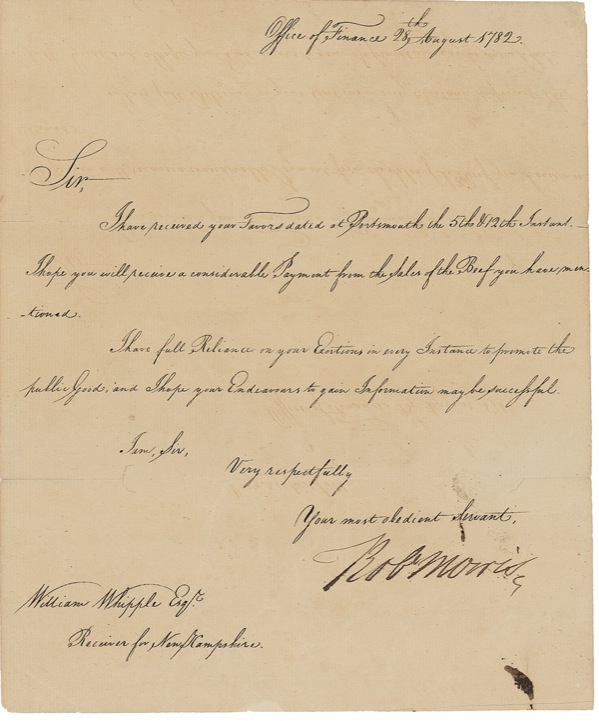 Office of Finance 28th August 1782.
Sir,
I have received your Favors dated at Portsmouth the 5th & 12th Instant.
I hope you will receive a considerable Payment from the Sales of the Beef you have men-
-tioned.
I have full Reliance on your Exertions in every Instance to promote the
public Good; and I hope your Endeavours to gain Information may be successful.
I am, Sir,
Very respectfully
Your most obedient Servant,
Robt Morris
William Whipple Esqr.
Receiver for New Hampshire.